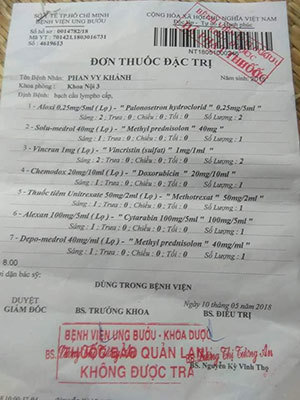 SỞ Y TẾ TP.HỒ CHÍ MINH
BỆNH VIỆN UNG BƯỚU
Số hồ sơ : 0014782/18
Mã YT : 701421.1803016731
Số : 4619613
CỘNG HÒA XÃ HỘI CHỦ NGHĨA VIỆT NAM
ĐƠN THUỐC ĐẶC TRỊ
Tên Bệnh Nhân : PHAN VY KHÁNH
Năm sinh:
Khoa phòng : Khoa Nội 3
Định Bệnh: bạch cầu lympho cấp,
1 - Aloxi 0,25mg/5ml ( Lọ) - " Palonosetron hydroclorid " 0,25mg/5ml"
Sáng : 2 ; Trưa : 0 ; Chiều : 0 ; Tối : 0 Số Lượng : 2
2 - Solu-medrol 40mg ( Lọ) - " Methyl prednisolon " 40mg"
Sáng : 2 ; Trưa : 0 ; Chiều : 0 ; Tối : 0 Số Lượng : 2
3 - Vincran 1mg ( Lọ) - " Vincristin (sulfat) " 1mg/1ml"
Số Lượng : 2
4 - Chemodox 20mg/10ml ( Lọ) - " Doxorubicin " 20mg/10ml"
Sáng : 1 ; Trưa : 0 ; Chiều : 0 ; Tối : 0 Số Lượng : 1
5 - Thuốc tiêm Unitrexate 50mg/2ml ( Lọ) - " Methotrexat " 50mg/2ml"
Sáng : 1 ; Trưa : 0 ; Chiều : 0 ; Tối : 0 Số Lượng : 1
6 - Alexan 100mg/5ml ( Lọ) - " Cytarabin 100mg/5ml " 100mg/5ml"
Sáng : 1 ; Trưa : 0 ; Chiều : 0 ; Tối : 0 Số Lượng : 1
7 - Depo-medrol 40mg/ml ( Lọ) - " Methyl prednisolon " 40mg/ml"
Sáng : 1 ; Trưa : 0 ; Chiều : 0 ; Tối : 0 Số Lượng : 1
8.00
dặn bác sỹ:
DÙNG TRONG BỆNH VIỆN
Ngày 10 tháng 05 năm 2018
DUYỆT
GIÁM ĐỐC
BS. TRƯỞNG KHOA
BS. ĐIỀU TRỊ
BỆNH VIỆN UNG BƯỚU - KHOA DƯỢC
THUỐC BẢO QUẢN LẠNH
KHÔNG ĐƯỢC TRẢ
BS. Nguyễn Kỳ Vĩnh Thọ